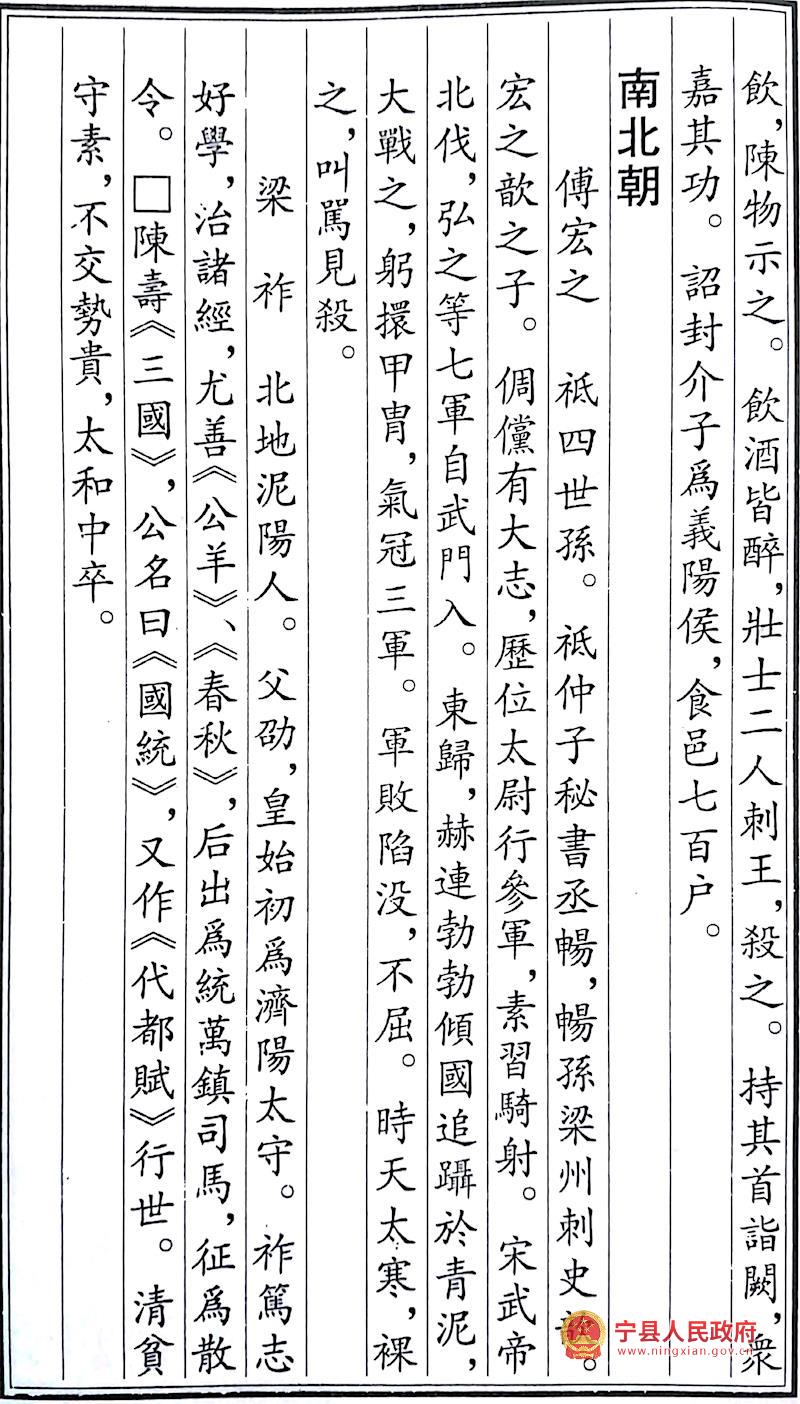 飲，陳物示之。飲酒皆醉，壯士二人刺王，殺之。持其首詣闕，衆
嘉其功。詔封介子爲義陽侯，食邑七百户。
南北朝
傅宏之　祗四世孫。祗仲子秘書丞暢，暢孫梁州刺史。
宏之歆之子。倜儻有大志，歷位太尉行參軍，素習騎射。宋武帝
北伐，弘之等七軍自武門入。東歸，赫連勃勃傾國追躡於青泥，
大戰之，躬擐甲冑，氣冠三軍。軍敗陷没，不屈。時天太寒，裸
之，叫駡見殺。
梁　祚　北地泥陽人。父劭，皇始初爲濟陽太守。祚篤志
好學，治諸經，尤善《公羊》、《春秋》，后出爲統萬鎮司馬，征爲散
令。□陳壽《三國》，公名曰《國統》，又作《代都賦》行世。清貧
守素，不交勢貴，太和中卒。
宁县人民政府
www.ningxian.gov.cn